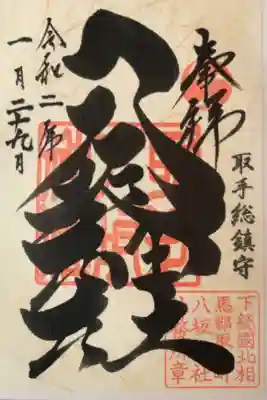 奉拝
取手総鎮守
八坂神社
令和二年
一月二十九日
下総國北相
馬郡取手町
八坂神社